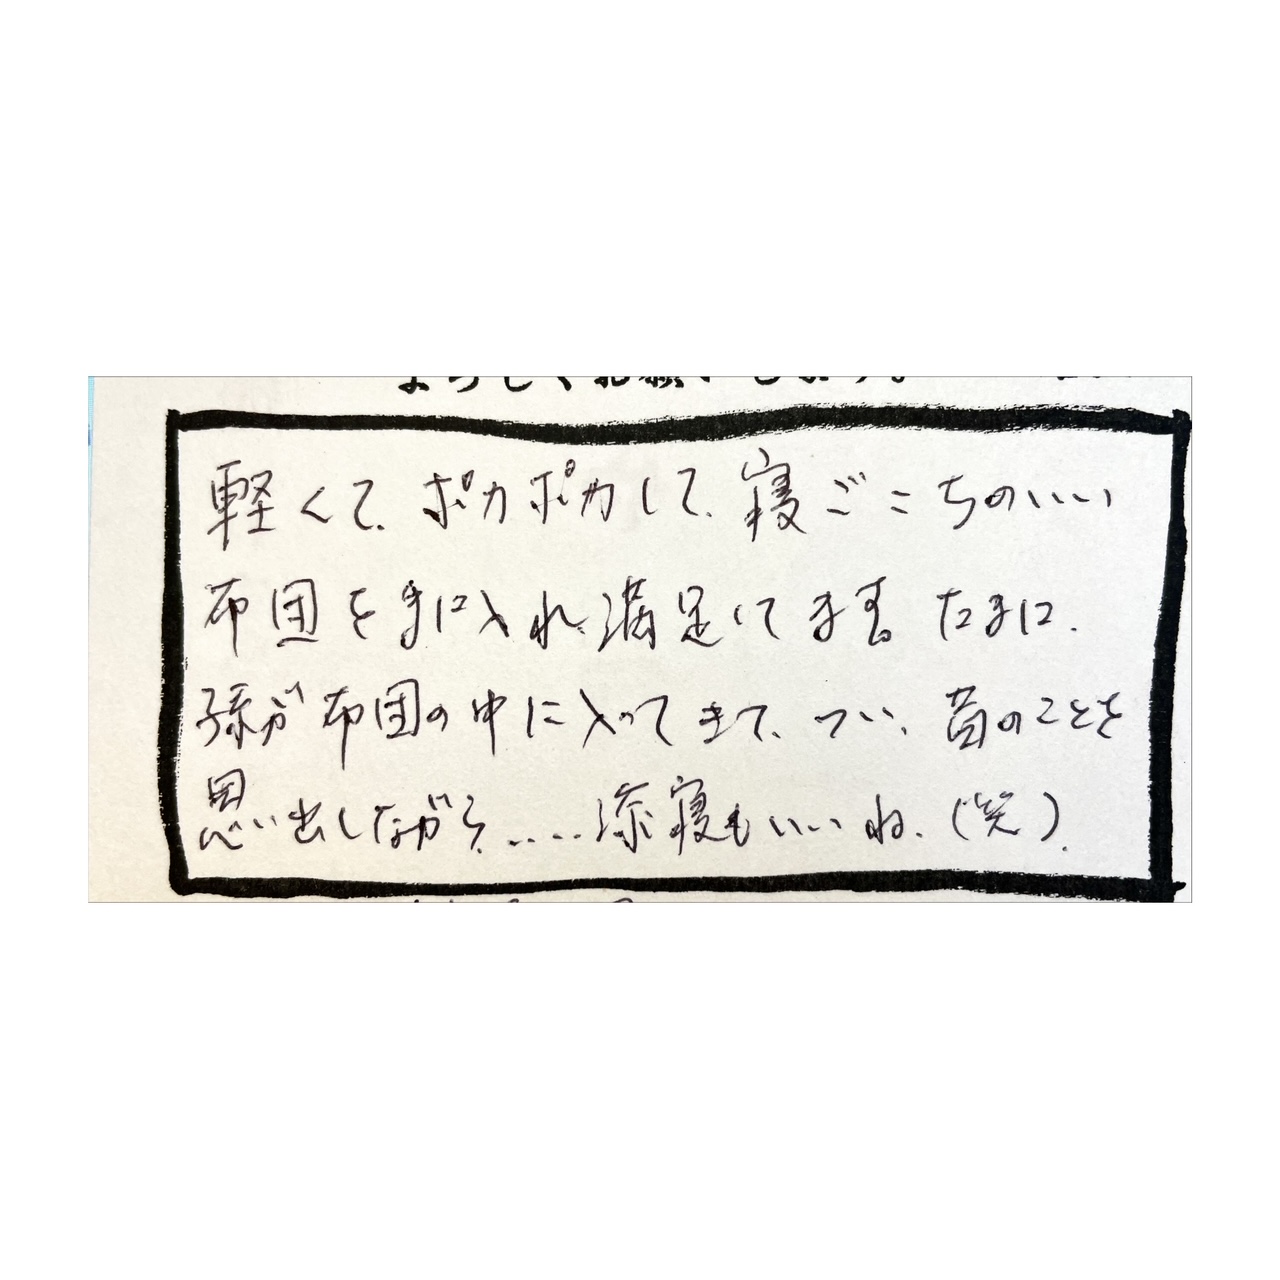 軽くて、ポカポカして、寝ごこちのいい
布団を手に入れ、満足してます。たまに、
孫が布団の中に入ってきて、つい、昔のことを
思い出しながら、.....添寝もいいね、(笑)。